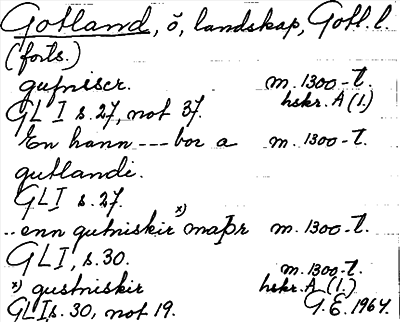 Gotland, ö, landskap, Gotl. l.
(forts.)
gufniscr. m. 1300-t.
GLI s. 27, not 37. hskr. A (1.)
En hann --- bor a m. 1300-t.
gutlandi.
GLI s. 27.
.. enn gutniskir x) maþr m. 1300-t.
GLI, s. 30. m. 1300-t.
x) gustniskir hskr. A (1.)
GLI s. 30, not 19. G.E. 1964.